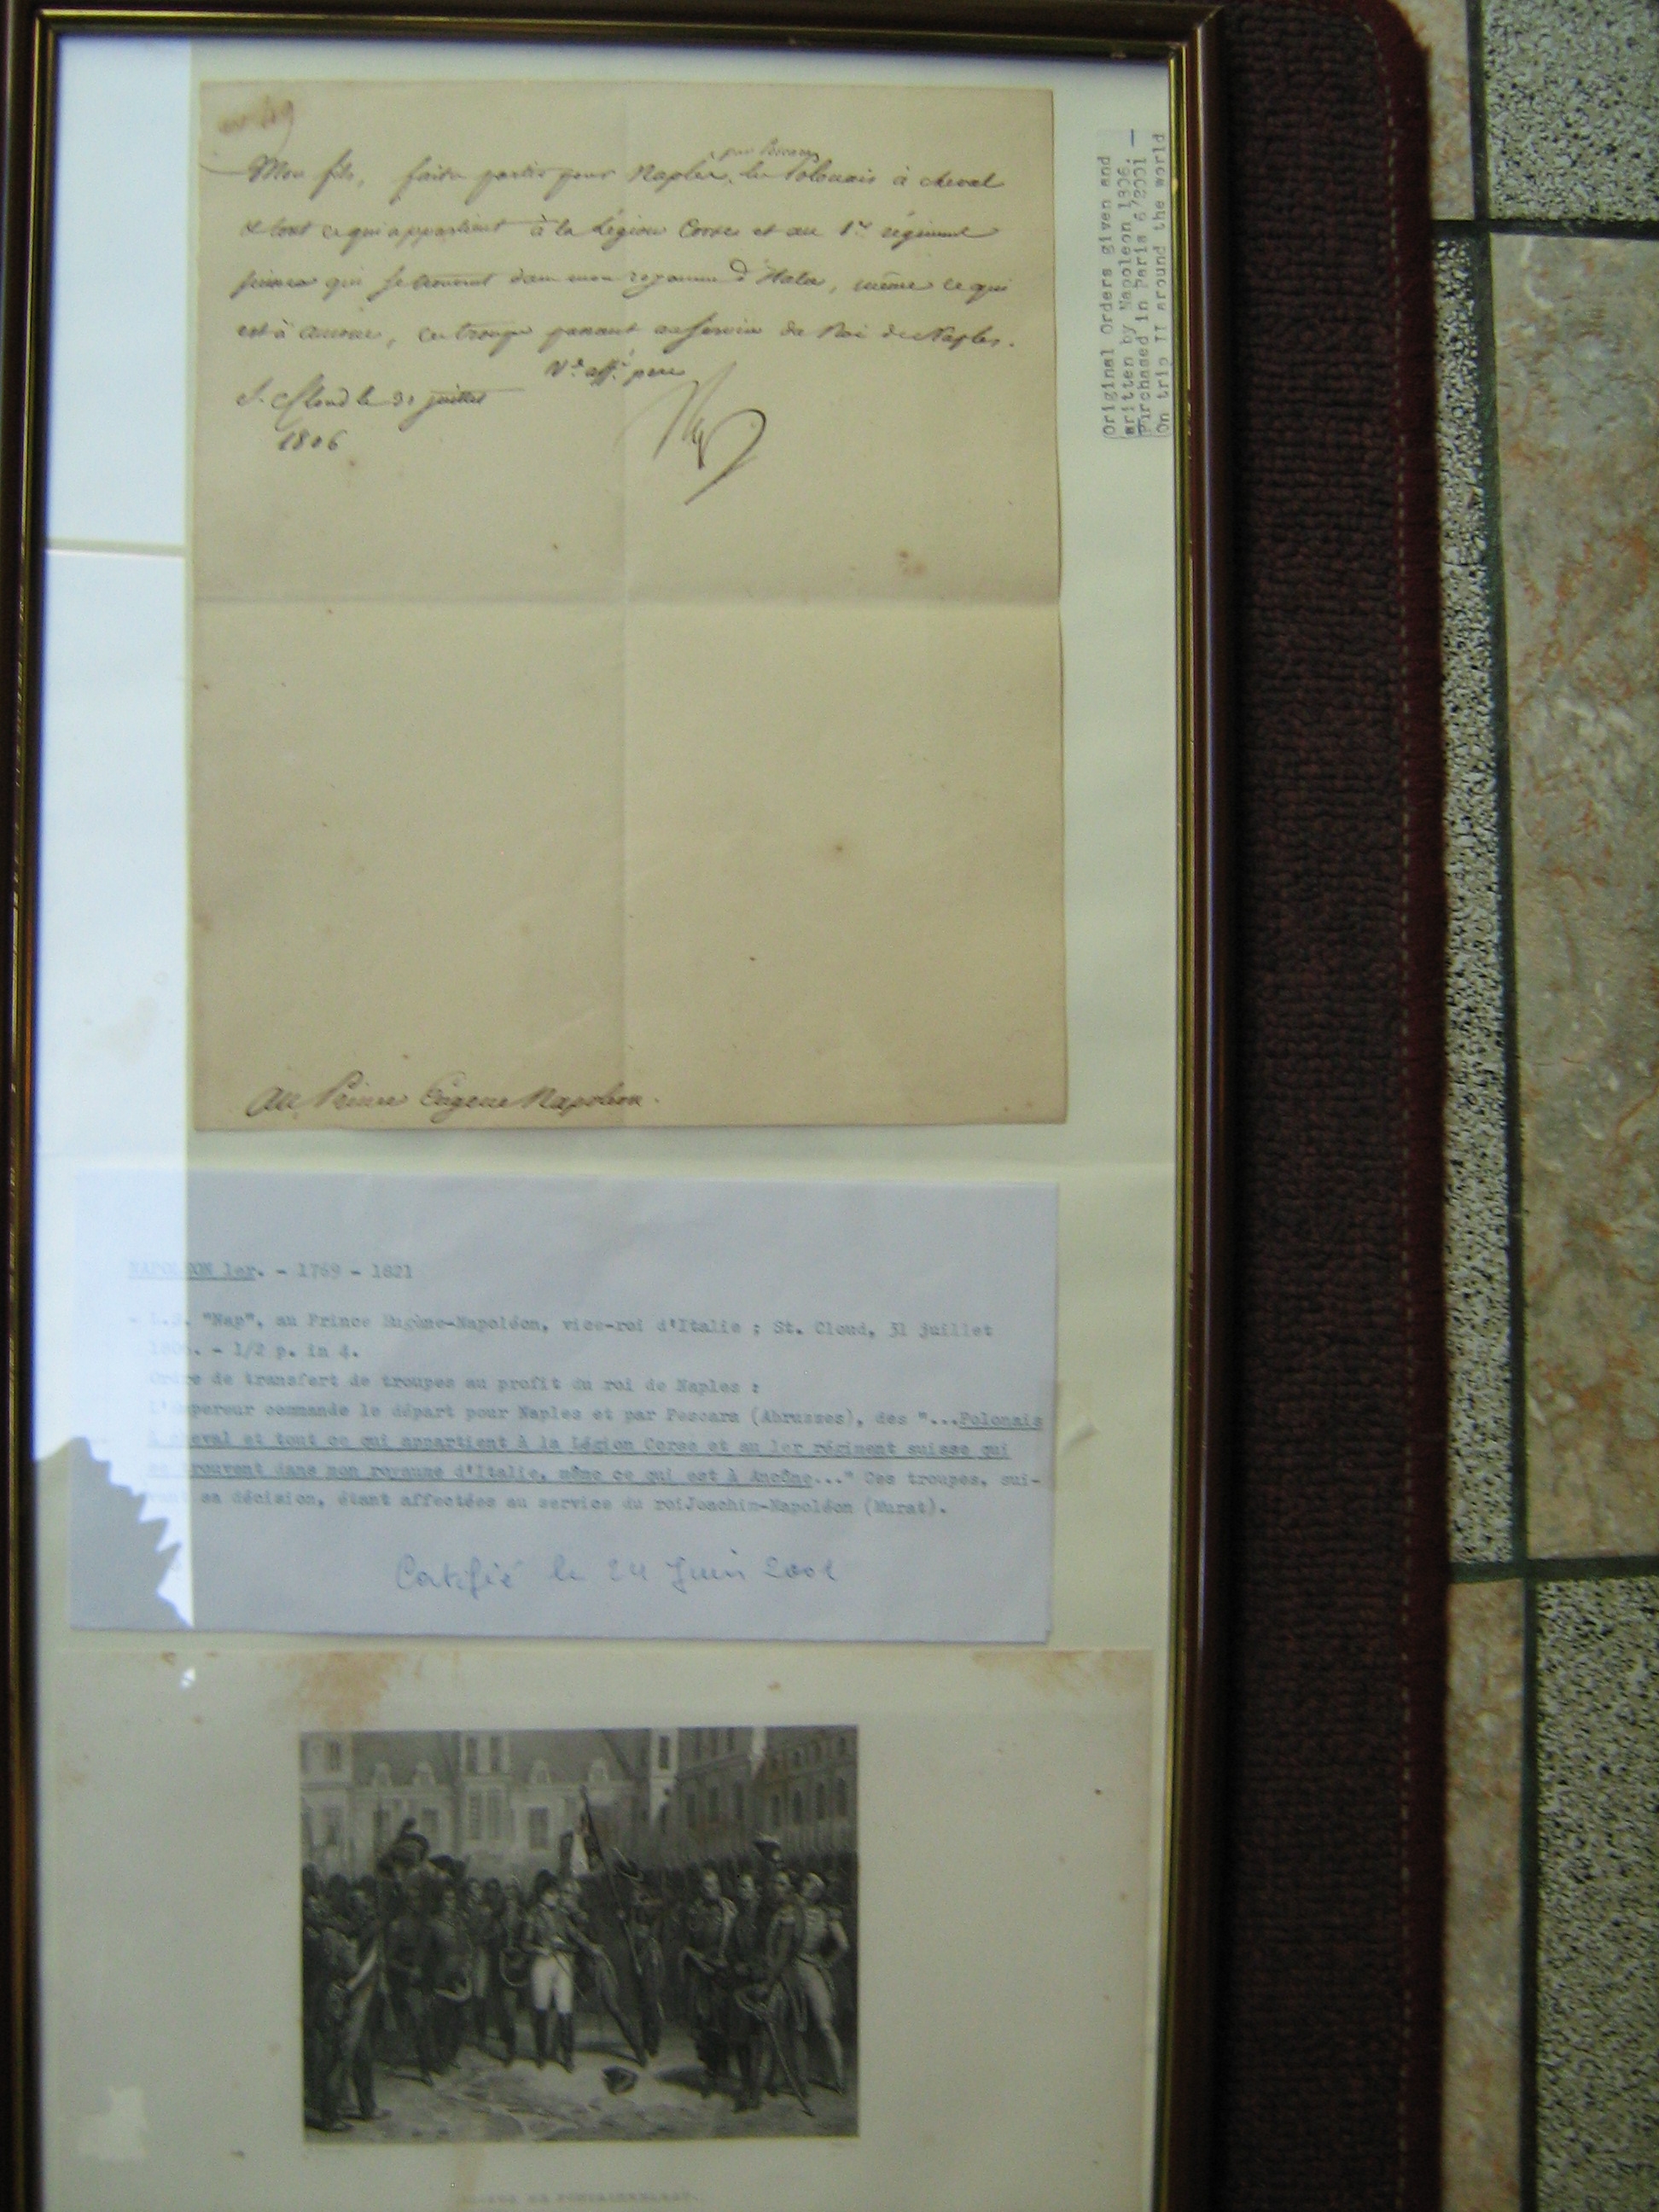 par Pescara
Mon fils, faites partir pour Naples, les Polonais à cheval
et tout ce qui appartient à la Légion Corse et au 1er régiment
suisse qui se trouvent dans mon royaume d'Italie, même ce qui
est à Ancone, ces troupes passant au service du Roi de Naples.
Vre affé père
St. Cloud le 31 juillet
1806
Nap
Au Prince Eugene Napoleon.
Original Orders given and
written by Napoleon 1806. —
Purchased in Paris 6/2001
On trip II around the world
NAPOLEON 1er. - 1769 - 1821
- L.S. "Nap", au Prince Eugène-Napoléon, vice-roi d'Italie ; St. Cloud, 31 juillet
1806. - 1/2 p. in 4.
Ordre de transfert de troupes au profit du roi de Naples :
L'Empereur commande le départ pour Naples et par Pescara (Abruzzes), des "...Polonais
à cheval et tout ce qui appartient à la Légion Corse et au 1er régiment suisse qui
se trouvent dans mon royaume d'Italie, même ce qui est à Ancône..." Ces troupes, sui-
vant sa décision, étant affectées au service du roiJoachim-Napoléon (Murat).
Certifié le 24 Juin 2001
DE FONTAINEBLEAU.